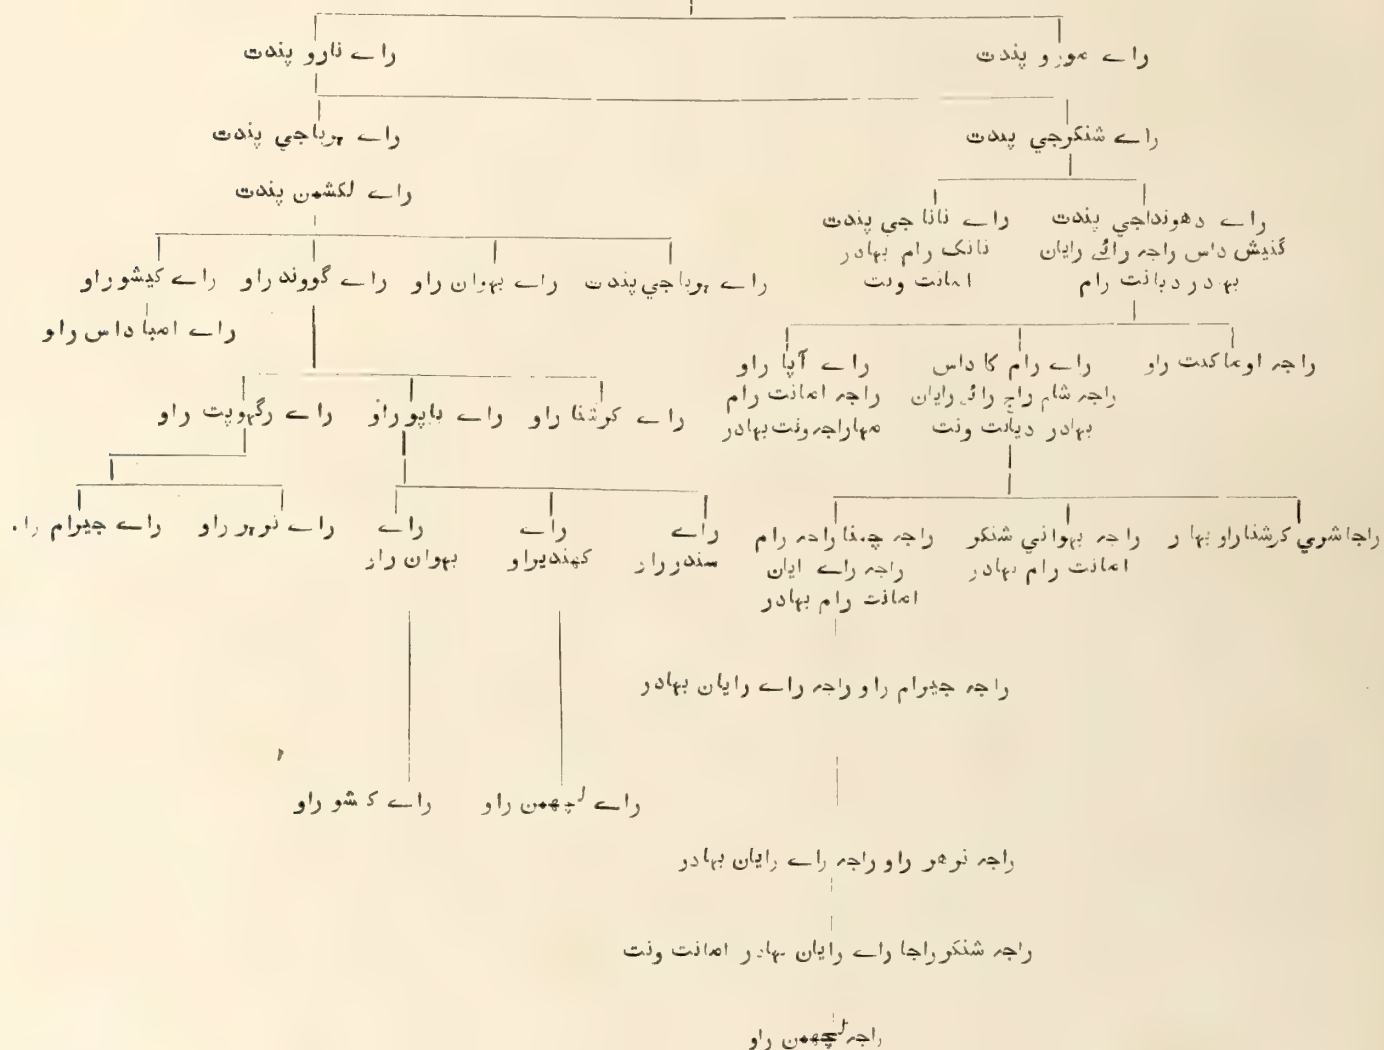 راے مورو پندت
راے نارو پندت
راے شنکرجي پندت
راے ہرباجي پندت
راے لکشمن پندت
راے دھونداجي پندت
گنیش داس راجہ رائے رایان
بہادر دیانت رام
راے نانا جي پندت
نانک رام بهادر
امانت ونت
راے ہرباجي پندت
راے بہوان راو
راے گووند راو
راے کیشو راو
راے امبا داس راو
راجہ اوماکنت راو
راے رام کا داس
راجہ شام راج رائے رایان
بہادر دیانت ونت
راے آپا راو
راجہ امانت رام
مہاراجہ ونت بہادر
راے کرشنا راو
راے باپو راؤ
راے رگہوپت راو
راجا شري کرشنا راو
راجہ بہواني شنکر
امانت رام بهادر
راجہ رام
راجہ راے
امانت رام بہادر
راے
سندر راو
راے
کهنڈیراو
راے
بہوان راو
راے نرہر راو
راے جیرام
راجہ جیرام راو راجہ راے رایان بہادر
راے لچهمن راو
راے کشو راو
راجہ نرهر راو راجہ راے رایان بہادر
راجہ شنکر راجا راے رایان بہادر امانت ونت
راجہ لچهمن راو